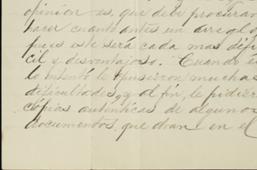 opinion es, que debe procurar
hacer cuanto antes un arreglo
pues este será cada mas difi-
cil y desventajoso. Cuando en
lo intentó le pusieron muchas
dificultades, y al fin, le pidier
copias auténticas de algunos
documentos, que obran en el